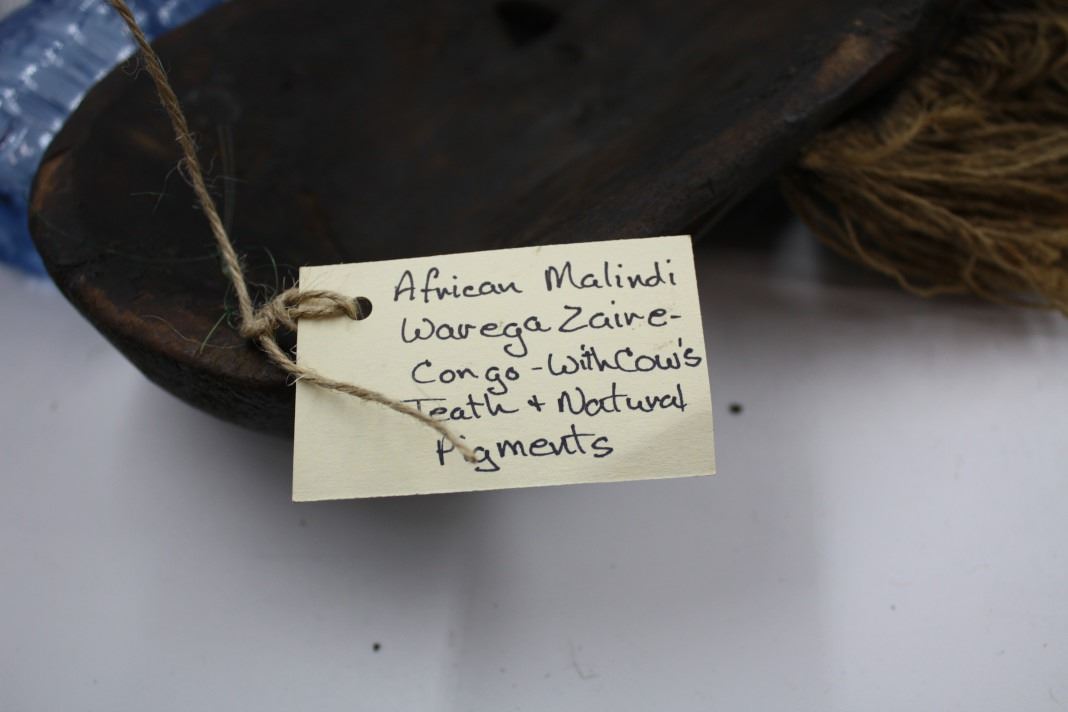 African Malindi
Warega Zaire-
Congo - With Cow's
Teath + Natural
Pigments